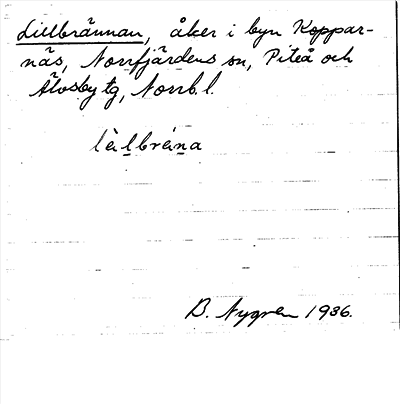 Lillbrännan, åker i byn Koppar-
näs, Norrfjärdens sn, Piteå och
Älvsby tg, Norrb. l.
lìlbrä́na
B. Nygren 1936.